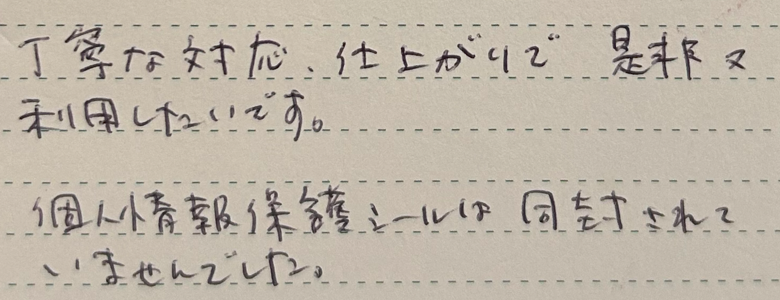 丁寧な対応、仕上がりで 是非又
利用したいです。
個人情報保護シールは 同封されて
いませんでした。